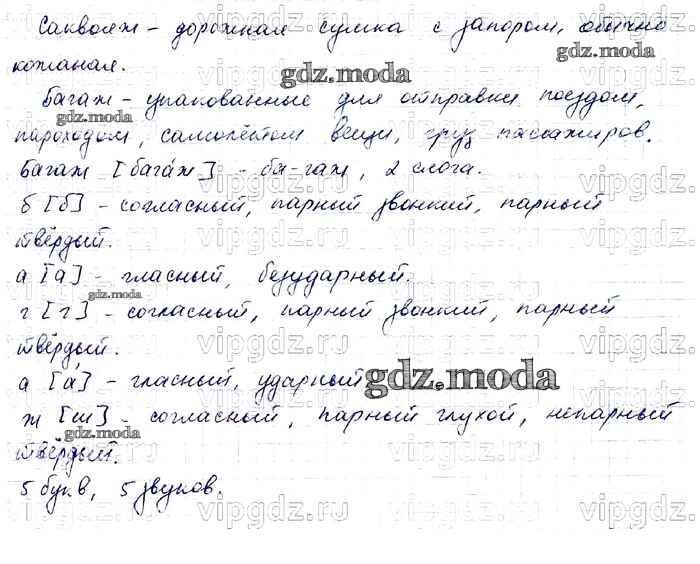 Саквояж – дорожная сумка с запором, обычно
кожаная.
Багаж – упакованные для отправки поездом,
пароходом, самолётом вещи, груз пассажиров.
Багаж [бага́ж] - ба-гаж, 2 слога.
б [б] - согласный, парный звонкий, парный
твёрдый.
а [а] - гласный, безударный.
г [г] - согласный, парный звонкий, парный
твёрдый.
а [а́] - гласный, ударный
ж [ш] - согласный, парный глухой, непарный
твёрдый.
5 букв, 5 звуков.
gdz.moda
gdz.moda
gdz.moda
gdz.moda
gdz.moda
vipgdz.ru